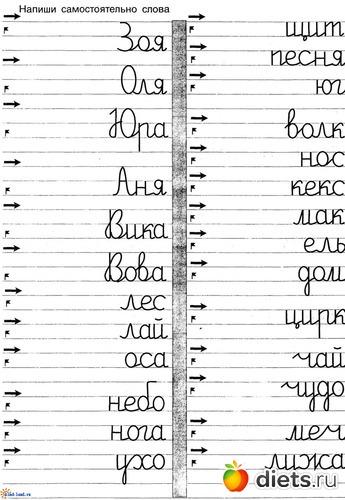 Напиши самостоятельно слова
Зоя
Оля
Юра
Аня
Вика
Вова
лес
лай
оса
небо
нога
ухо
щит
песня
юг
волк
нос
кекс
мак
ель
дом
цирк
чай
чудо
меч
лижа
diets.ru